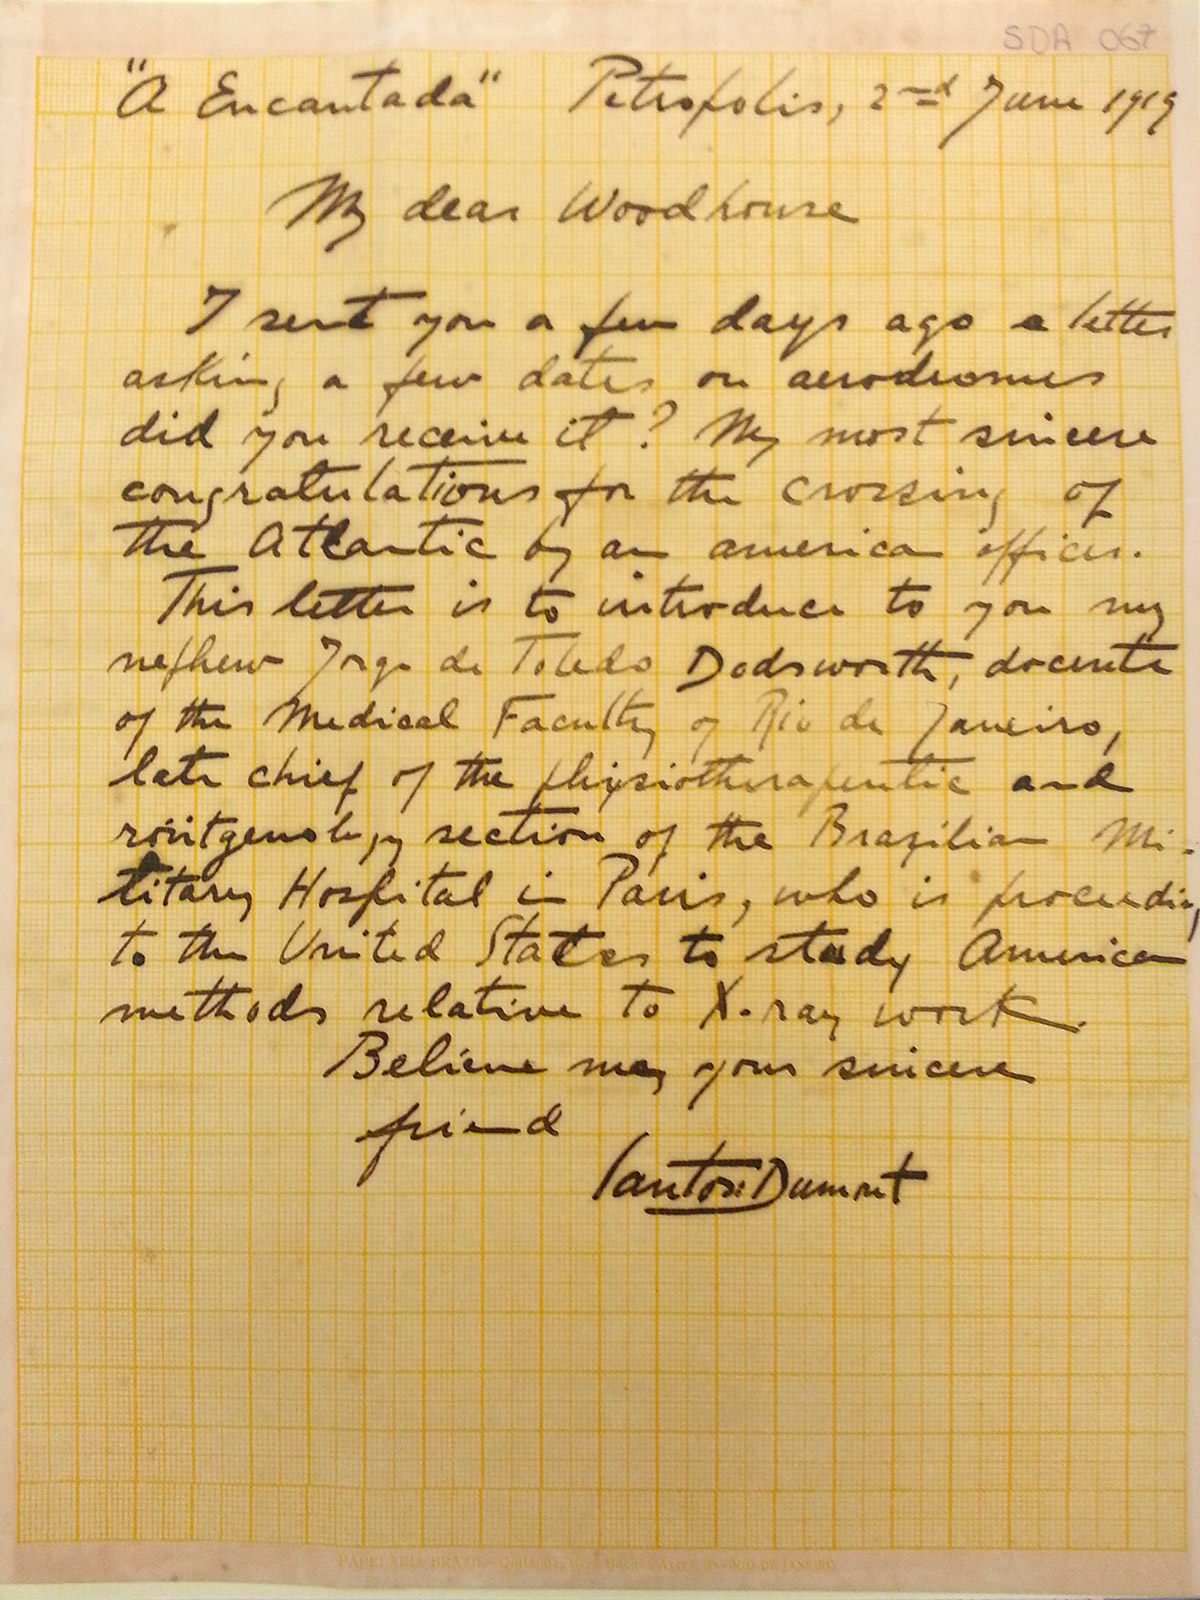 SDA 067
"A Encantada" Petropolis, 2nd June 1919
My dear Woodhouse
I sent you a few days ago a letter
asking a few dates on aerodromes
did you receive it? My most sincere
congratulations for the crossing of
the Atlantic by an american officer.
This letter is to introduce to you my
nephew Jorge de Toledo Dodsworth, docente
of the Medical Faculty of Rio de Janeiro,
late chief of the physiotherapeutic and
röntgenology section of the Brazilian Mi-
litary Hospital in Paris, who is proceeding
to the United States to study American
methods relative to X-ray work.
Believe me, your sincere
friend
Santos=Dumont
PAPELARIA BRAZIL RIO DE JANEIRO